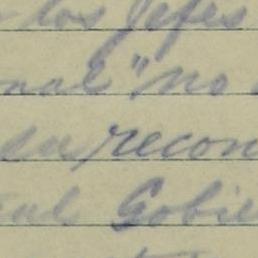 los Jefes
nal" no
su recon
al Gobie